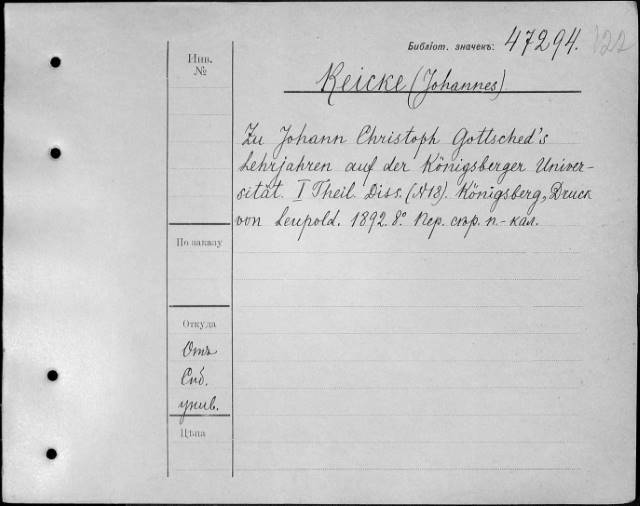 Библіот. значекъ: 47294. 122
Инв. №
Reicke (Johannes)
Zu Johann Christoph Gottsched's
Lehrjahren auf der Königsberger Univer-
sität. I Theil. Diss. (A 13). Königsberg, Druck
von Leupold. 1892. 8°. Пер. сѣр. п-кал.
По заказу
Откуда
Отъ
Спб.
унив.
Цѣна